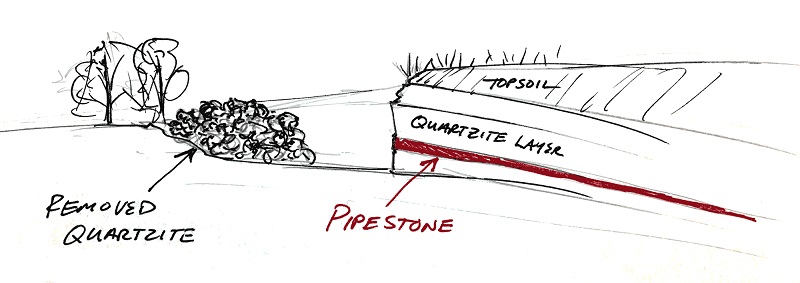 TOPSOIL
QUARTZITE LAYER
REMOVED
QUARTZITE
PIPESTONE